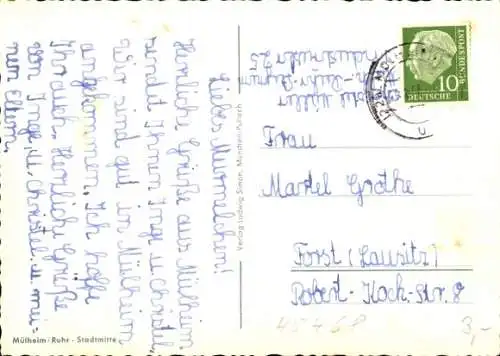 Liebes Murmelchen!
Herzliche Grüße aus Mülheim
sendet Ihnen Inge u. Christel.
Wir sind gut in Mülheim
angekommen. Ich hoffe
Ihr auch. Herzliche Grüße
von Inge, u. Christel, u. mei=
nen Eltern.
Müller
Industriestr. 25
Frau
Martel Grothe
Forst (Lausitz)
Robert-Koch-Str. 8
10
DEUTSCHE
BUNDESPOST
Verlag Ludwig Simon, München-Pullach
Mülheim-Ruhr - Stadtmitte
3,-